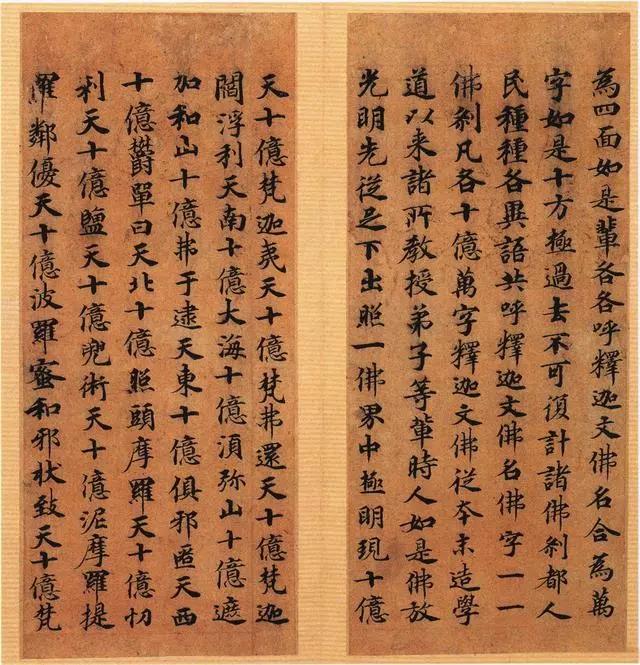 為四面如是輩各各呼釋迦文佛名合為萬
字如是十方極過去不可復計諸佛剎都人
民種種各異語共呼釋迦文佛名佛字一一
佛剎凡各十億萬字釋迦文佛從本末造學
道以来諸所教授弟子等輩時人如是佛放
光明光從足下出照一佛界中極明現十億
天十億梵迦夷天十億梵弗還天十億梵迦
閻浮利天南十億大海十億須弥山十億遮
加和山十億弗于逮天東十億俱邪匿天西
十億欝單曰天北十億照頭摩羅天十億忉
利天十億鹽天十億兜術天十億泥摩羅提
羅鄰優天十億波羅蜜和邪拔致天十億梵